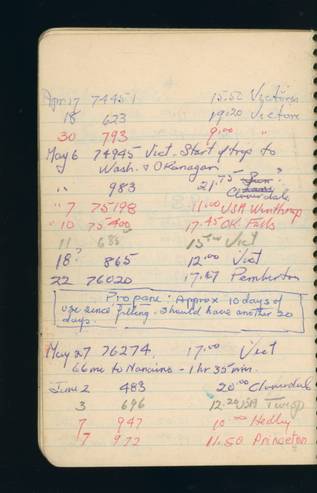 April 17 74451 15.50 Victoria
18 623 19.20 Victoria
30 793 9.00 "
May 6 74945 Vict. Start of trip to
Wash. & Okanagan
" 983 21.75 Cloverdale
" 7 75198 11.00 USA Winthrop
" 10 75400 17.45 OK. Falls
11 685 15.00 Vict
18? 865 12.00 Vict
22 76020 17.07 Pemberton
Propane: Approx 10 days of
use since filling. Should have another 20
days.
May 27 76274, 17.00 Vict
66 me to Nanaimo - 1 hr 35 min.
June 2 483 20.00 Cloverdale
3 696 12.20 USA Twisp
7 947 10.00 Hedley
7 972 11.50 Princeton